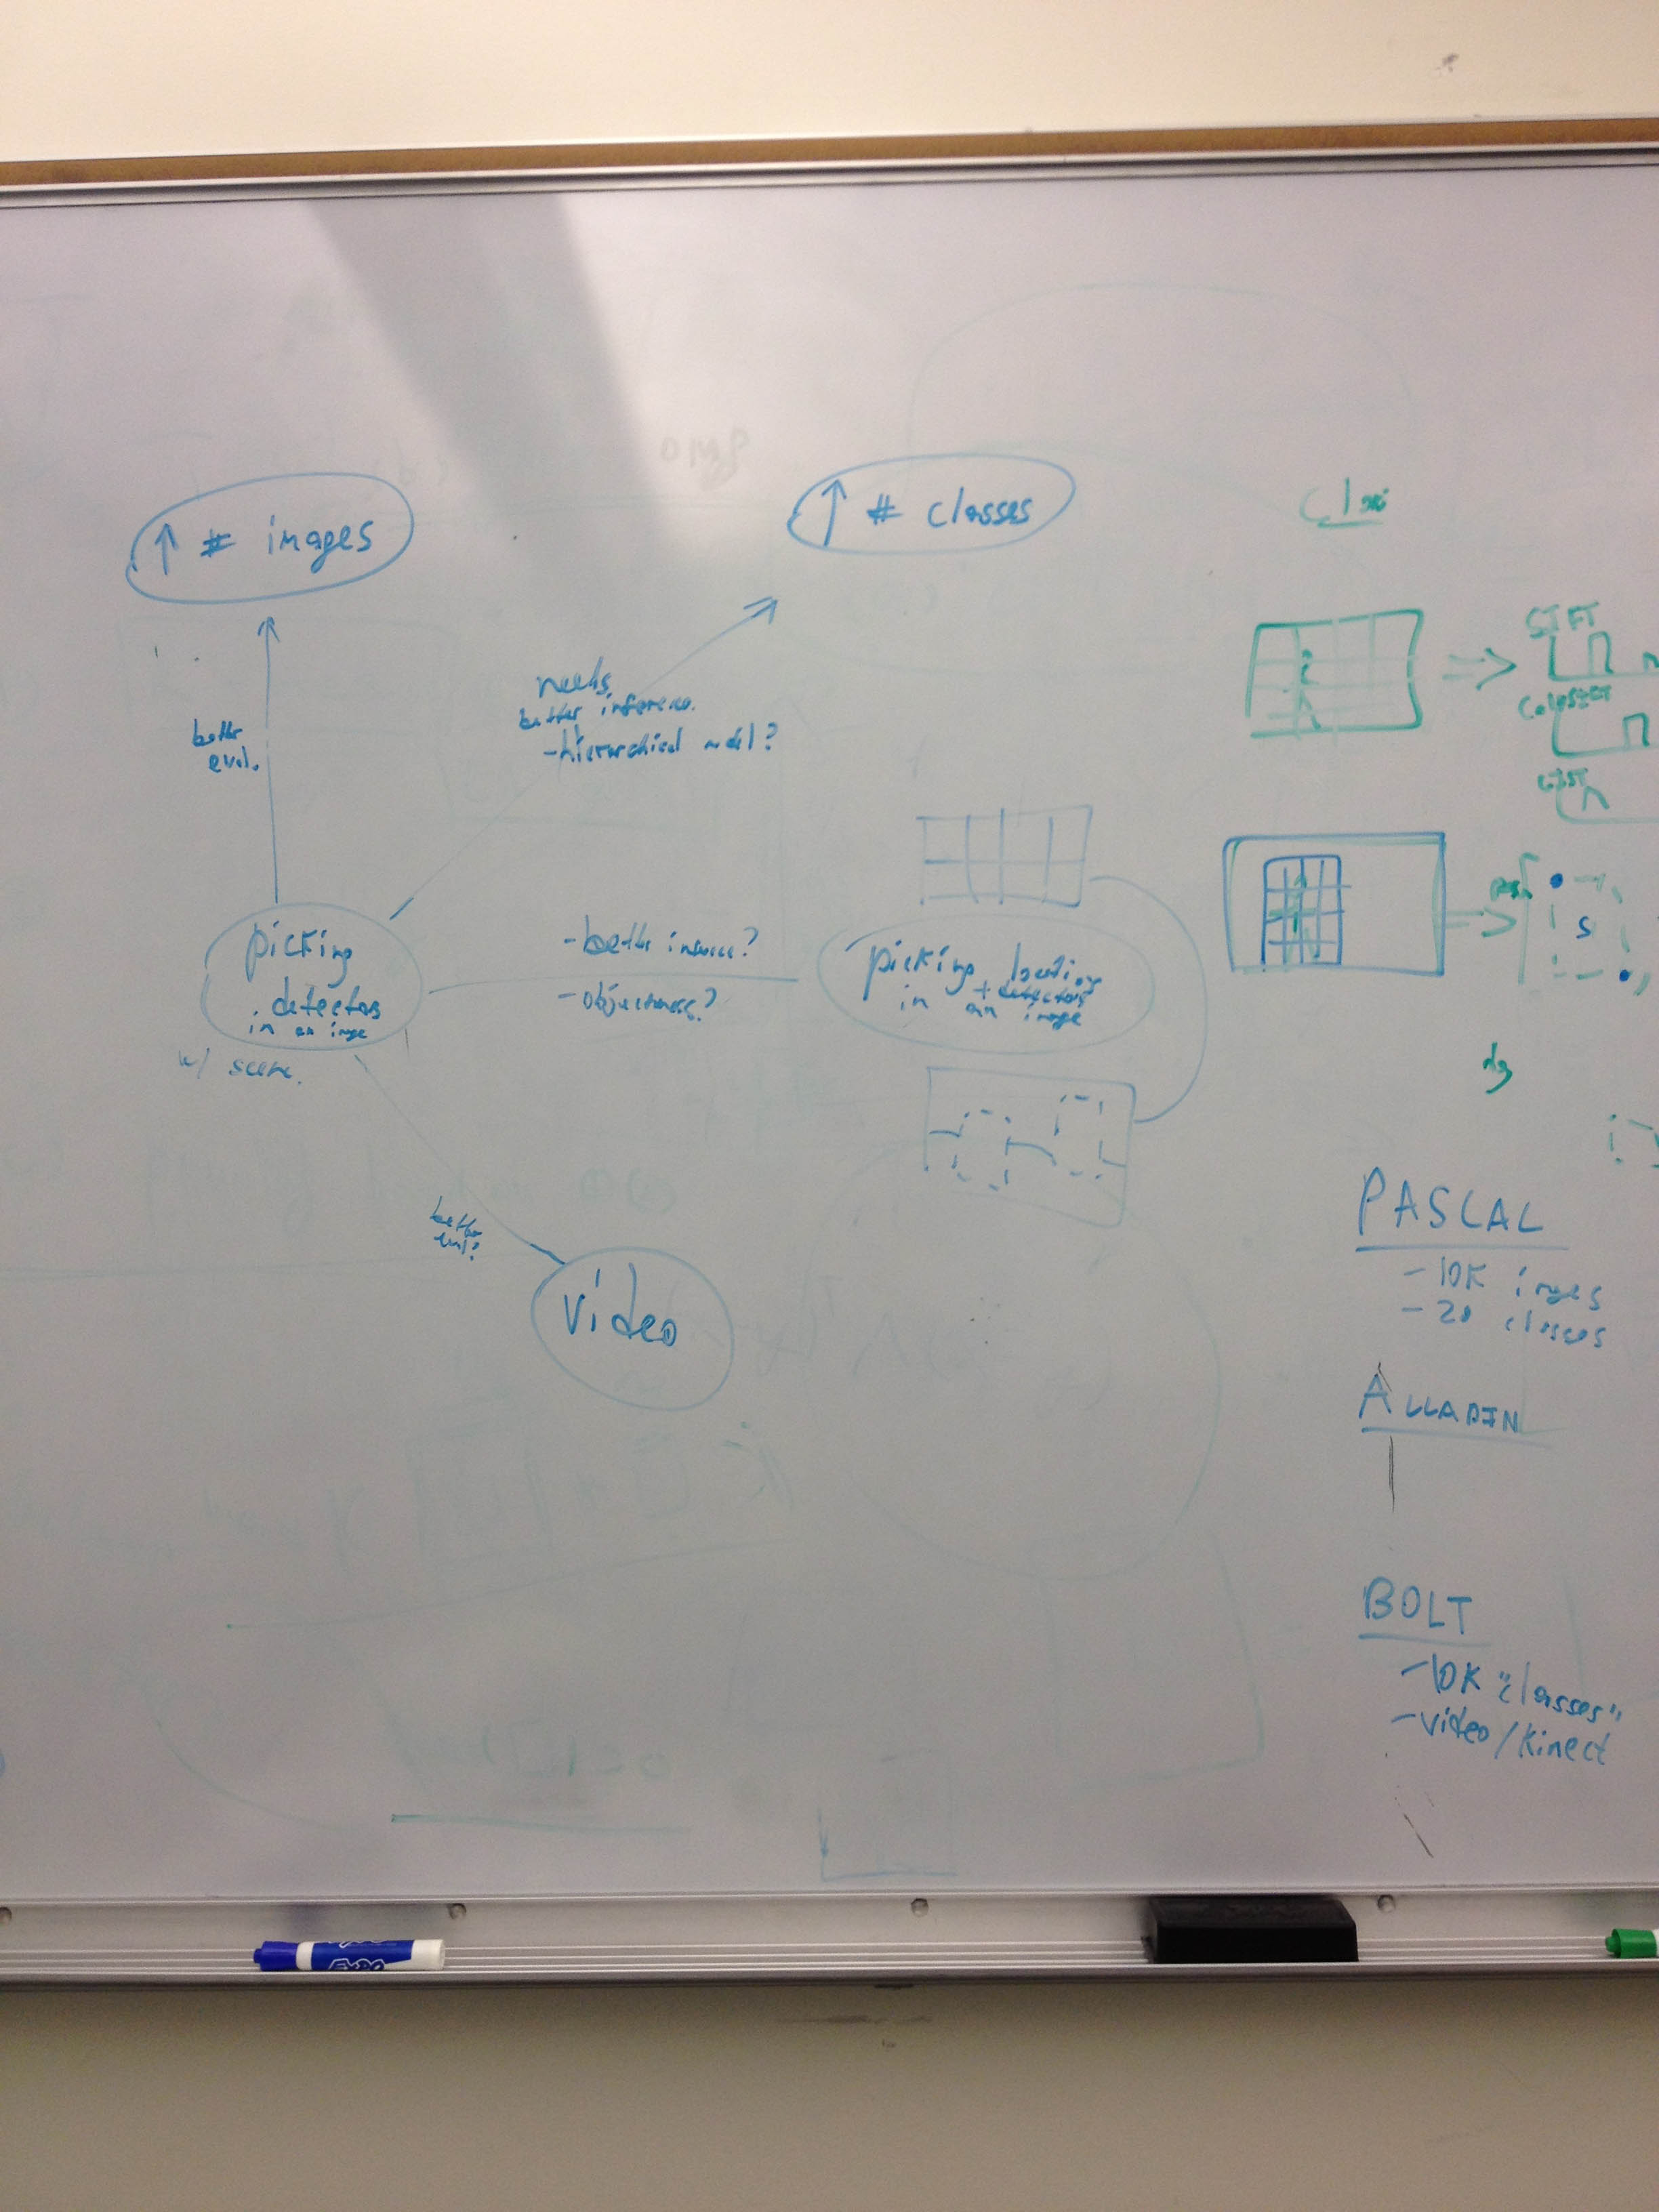 ↑ # images
↑ # classes
better
eval.
needs
better inference.
- hierarchical model?
picking
detectors
in an image
w/ scene.
- better
- objectness?
picking location
+ detectors
in an image
better
video
SIFT
GIST
S
PASCAL
- 10K images
- 20 classes
ALLADIN
BOLT
- 10K "classes"
- video/Kinect
EXPO